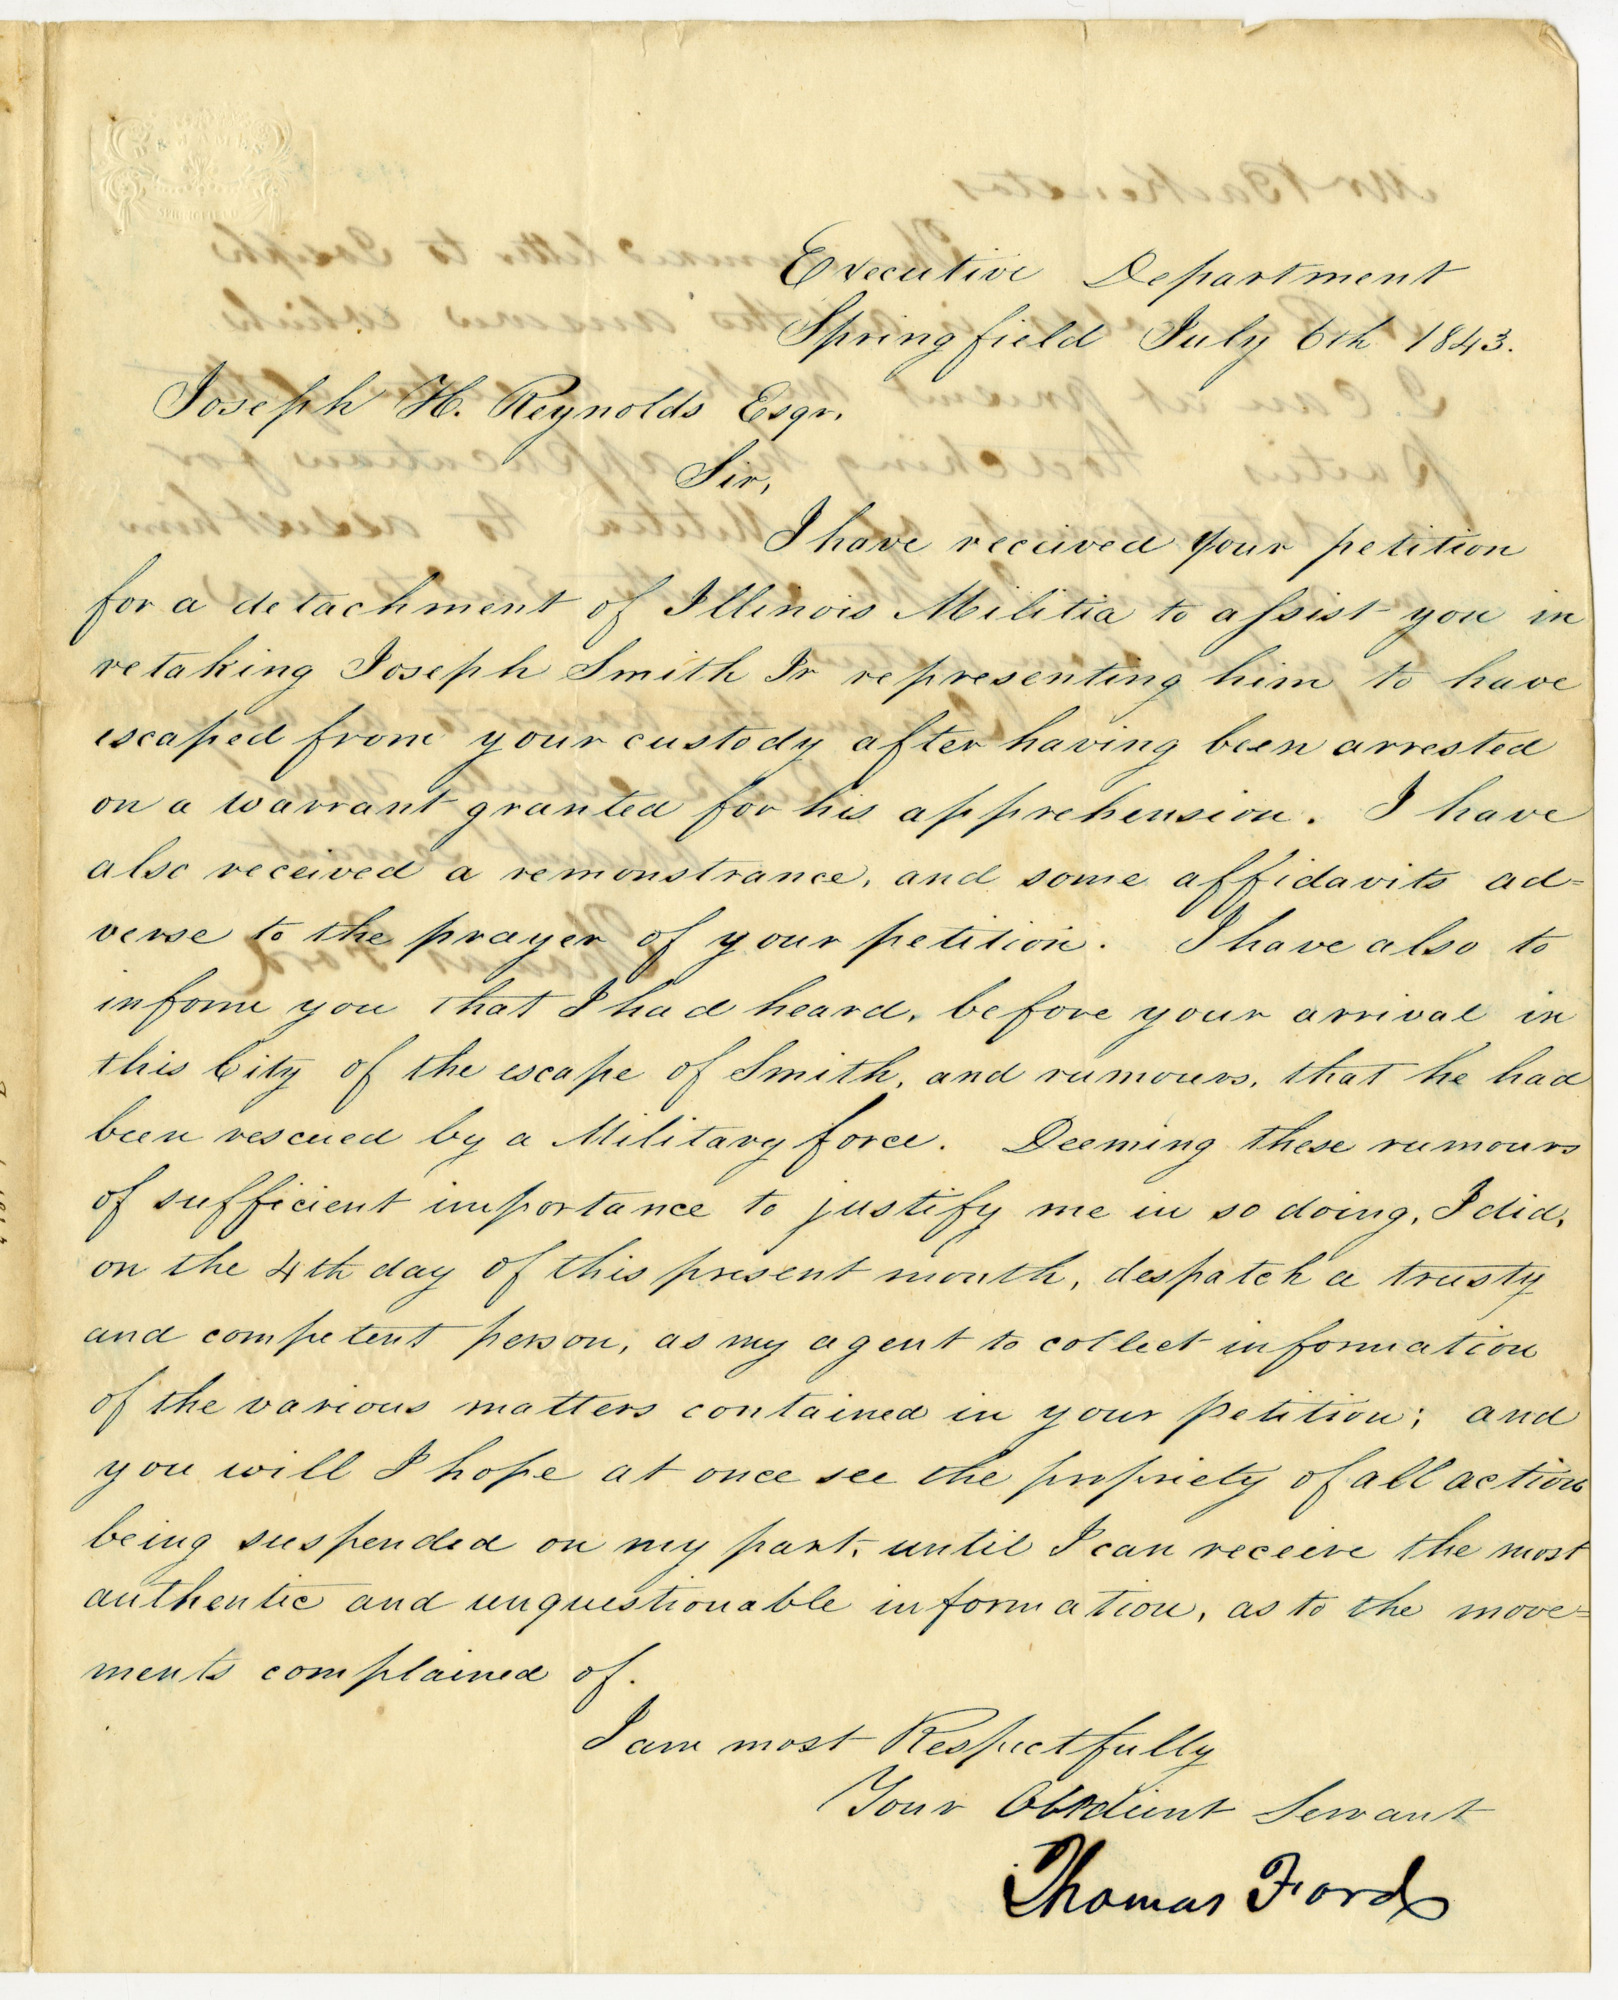 Executive Department
Springfield July 6th 1843.
Joseph H. Reynolds Esqr.
Sir,
I have received your petition
for a detachment of Illinois Militia to assist you in
retaking Joseph Smith Jr representing him to have
escaped from your custody after having been arrested
on a warrant granted for his apprehension. I have
also received a remonstrance, and some affidavits ad=
verse to the prayer of your petition. I have also to
inform you that I had heard, before your arrival in
this City of the escape of Smith, and rumours, that he had
been rescued by a Military force. Deeming these rumours
of sufficient importance to justify me in so doing, I did,
on the 4th day of this present month, despatch a trusty
and competent person, as my agent to collect information
of the various matters contained in your petition; and
you will I hope at once see the propriety of all action
being suspended on my part, until I can receive the most
authentic and unquestionable information, as to the move=
ments complained of.
I am most Respectfully
Your Obedient Servant
Thomas Ford